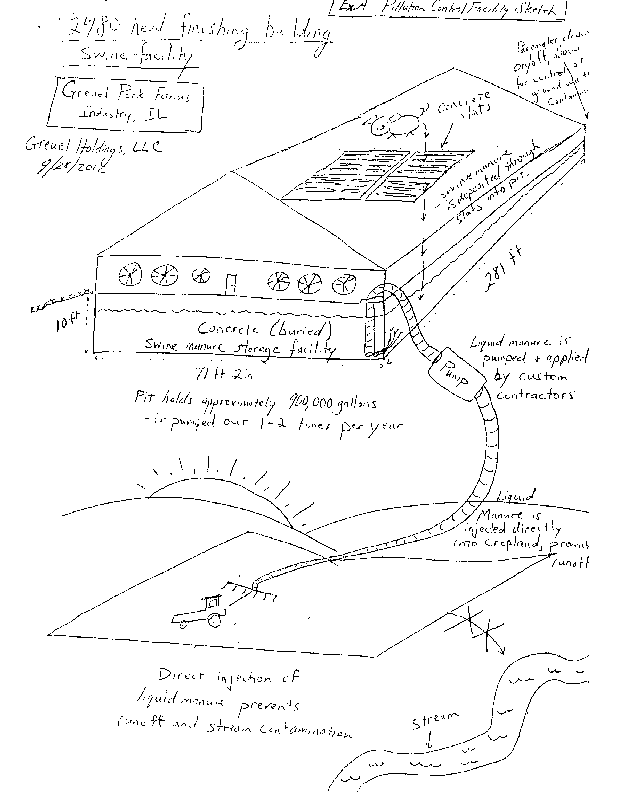 Pollution Control Facility Sketch
2480 head finishing building
Swine facility
Greuel Pork Farms
Industry, IL
Greuel Holdings, LLC
Concrete
slats
- swine manure
is deposited through
slats into pit.
281 ft
10 ft
Concrete (buried)
Swine manure storage facility
71 ft 2in
Pump
Liquid manure is
pumped + applied
by custom
contractors
Pit holds approximately 900,000 gallons
- is pumped out 1-2 times per year
Liquid
Manure is
injected directly
into Cropland,
runoff
Direct injection of
liquid manure prevents
runoff and stream contamination
Stream